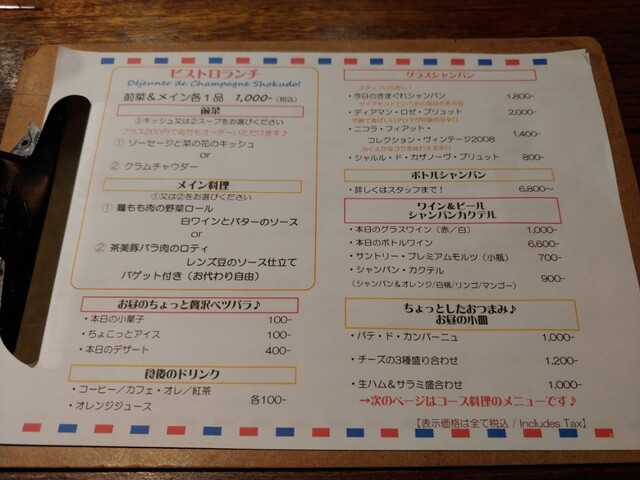 ビストロランチ
Déjeuner de Champagne Shokudo!
前菜&メイン各1品 1,000-(税込)
前菜
①キッシュ又は②スープをお選びください
プラス200円で両方もオーダーいただけます♪
① ソーセージと菜の花のキッシュ
or
② クラムチャウダー
メイン料理
①又は②をお選びください
① 鶏もも肉の野菜ロール
白ワインとバターのソース
or
② 茶美豚バラ肉のロティ
レンズ豆のソース仕立て
バゲット付き(お代わり自由)
お昼のちょっと贅沢ベツバラ♪
・本日の小菓子 100-
・ちょこっとアイス 100-
・本日のデザート 400-
食後のドリンク
・コーヒー/カフェ・オレ/紅茶
・オレンジジュース 各100-
グラスシャンパン
スタッフいちおし!
・今日のきまぐれシャンパン 1,800-
・ディアマン・ロゼ・ブリュット 2,000-
・ニコラ・フィアット・
コレクション・ヴィンテージ2008 1,400-
ふくよかなコクを味わえる辛口
・シャルル・ド・カザノーヴ・ブリュット 800-
ボトルシャンパン
・詳しくはスタッフまで! 6,800~
ワイン&ビール
シャンパンカクテル
・本日のグラスワイン(赤/白) 1,000-
・本日のボトルワイン 6,600-
・サントリー・プレミアムモルツ(小瓶) 700-
・シャンパン・カクテル 900-
(シャンパン&オレンジ/白桃/リンゴ/マンゴー)
ちょっとしたおつまみ♪
お昼の小皿
・パテ・ド・カンパーニュ 1,000-
・チーズの3種盛り合わせ 1,200-
・生ハム&サラミ盛合わせ 1,000-
→次のページはコース料理のメニューです♪
【表示価格は全て税込 / Includes Tax】